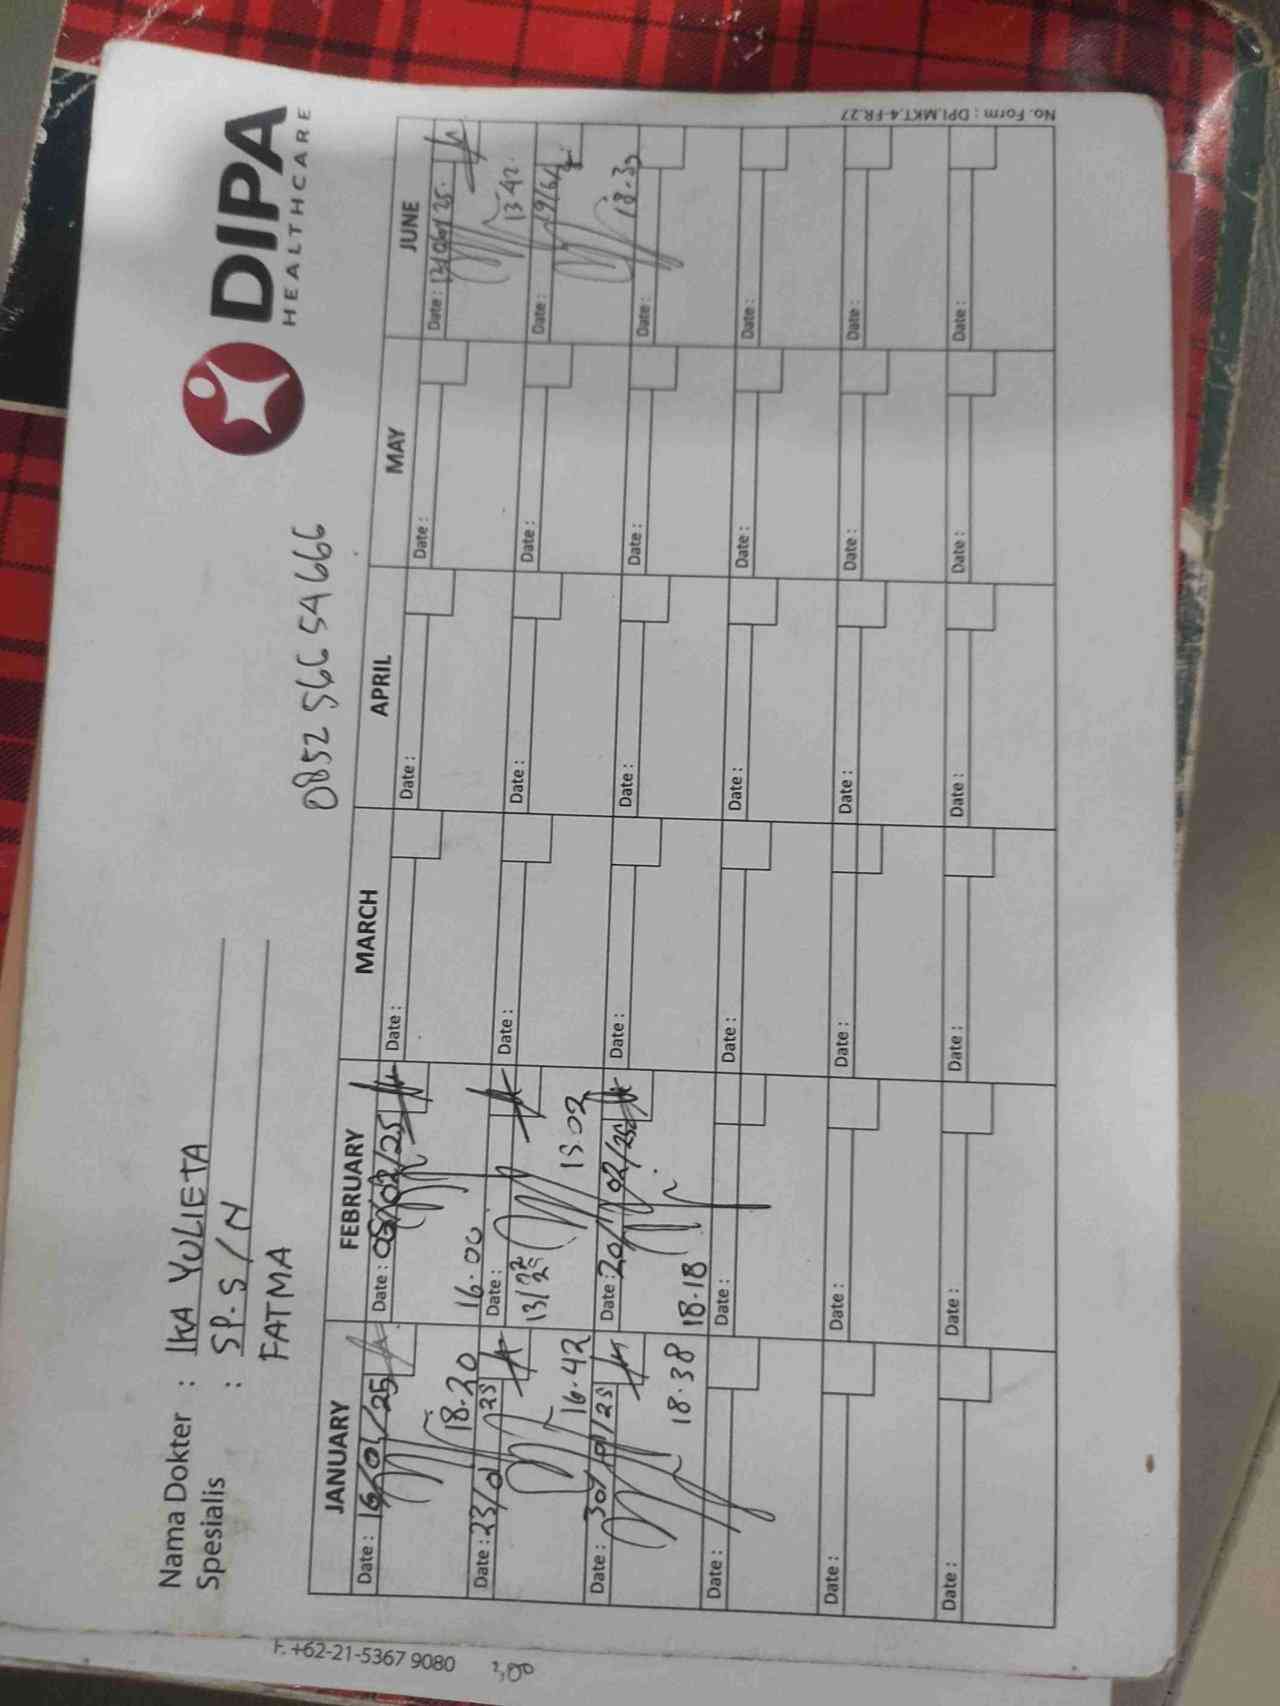 DIPA
HEALTHCARE
Nama Dokter : IKA YULIETA
Spesialis : SP.S / N
FATMA
0852 5665 4666
JANUARY FEBRUARY MARCH APRIL MAY JUNE
Date : 16/01/25 Date : 05/02/25 Date : Date : Date : Date : 12/06/25
18.20 16.00 13.42
Date : 23/01 25 Date : 13/02 25 Date : Date : Date : Date : 19/6/
16.42 13.02 18.33
Date : 30/01/25 Date : 20/02/25 Date : Date : Date : Date :
18.38 18.18
Date : Date : Date : Date : Date : Date :
Date : Date : Date : Date : Date : Date :
Date : Date : Date : Date : Date : Date :
No. Form : DPI.MKT.4-FR.27
F. +62-21-5367 9080